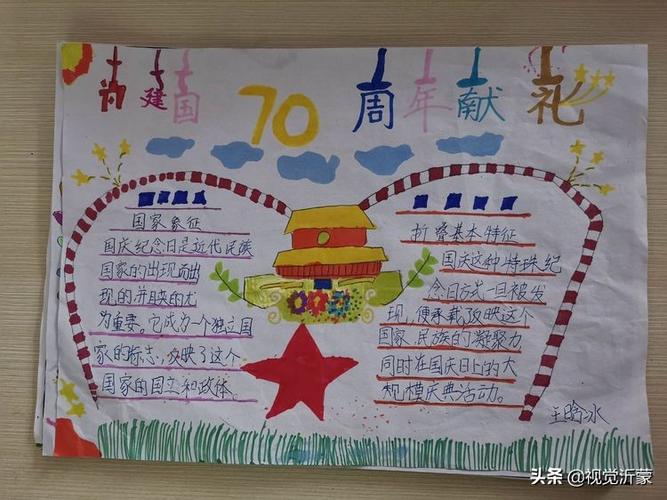 为建国70周年献礼
国家象征
国庆纪念日是近代民族
国家的出现而出
现的并且映的尤
为重要。它成为一个独立国
家的标志，反映了这个
国家的国立和政体。
折叠基本特征
国庆这种特殊纪
念日方式一旦被发
现，便承载反映这个
国家、民族的凝聚力
同时在国庆日上的大
规模庆典活动。
王晗冰
头条@视觉沂蒙